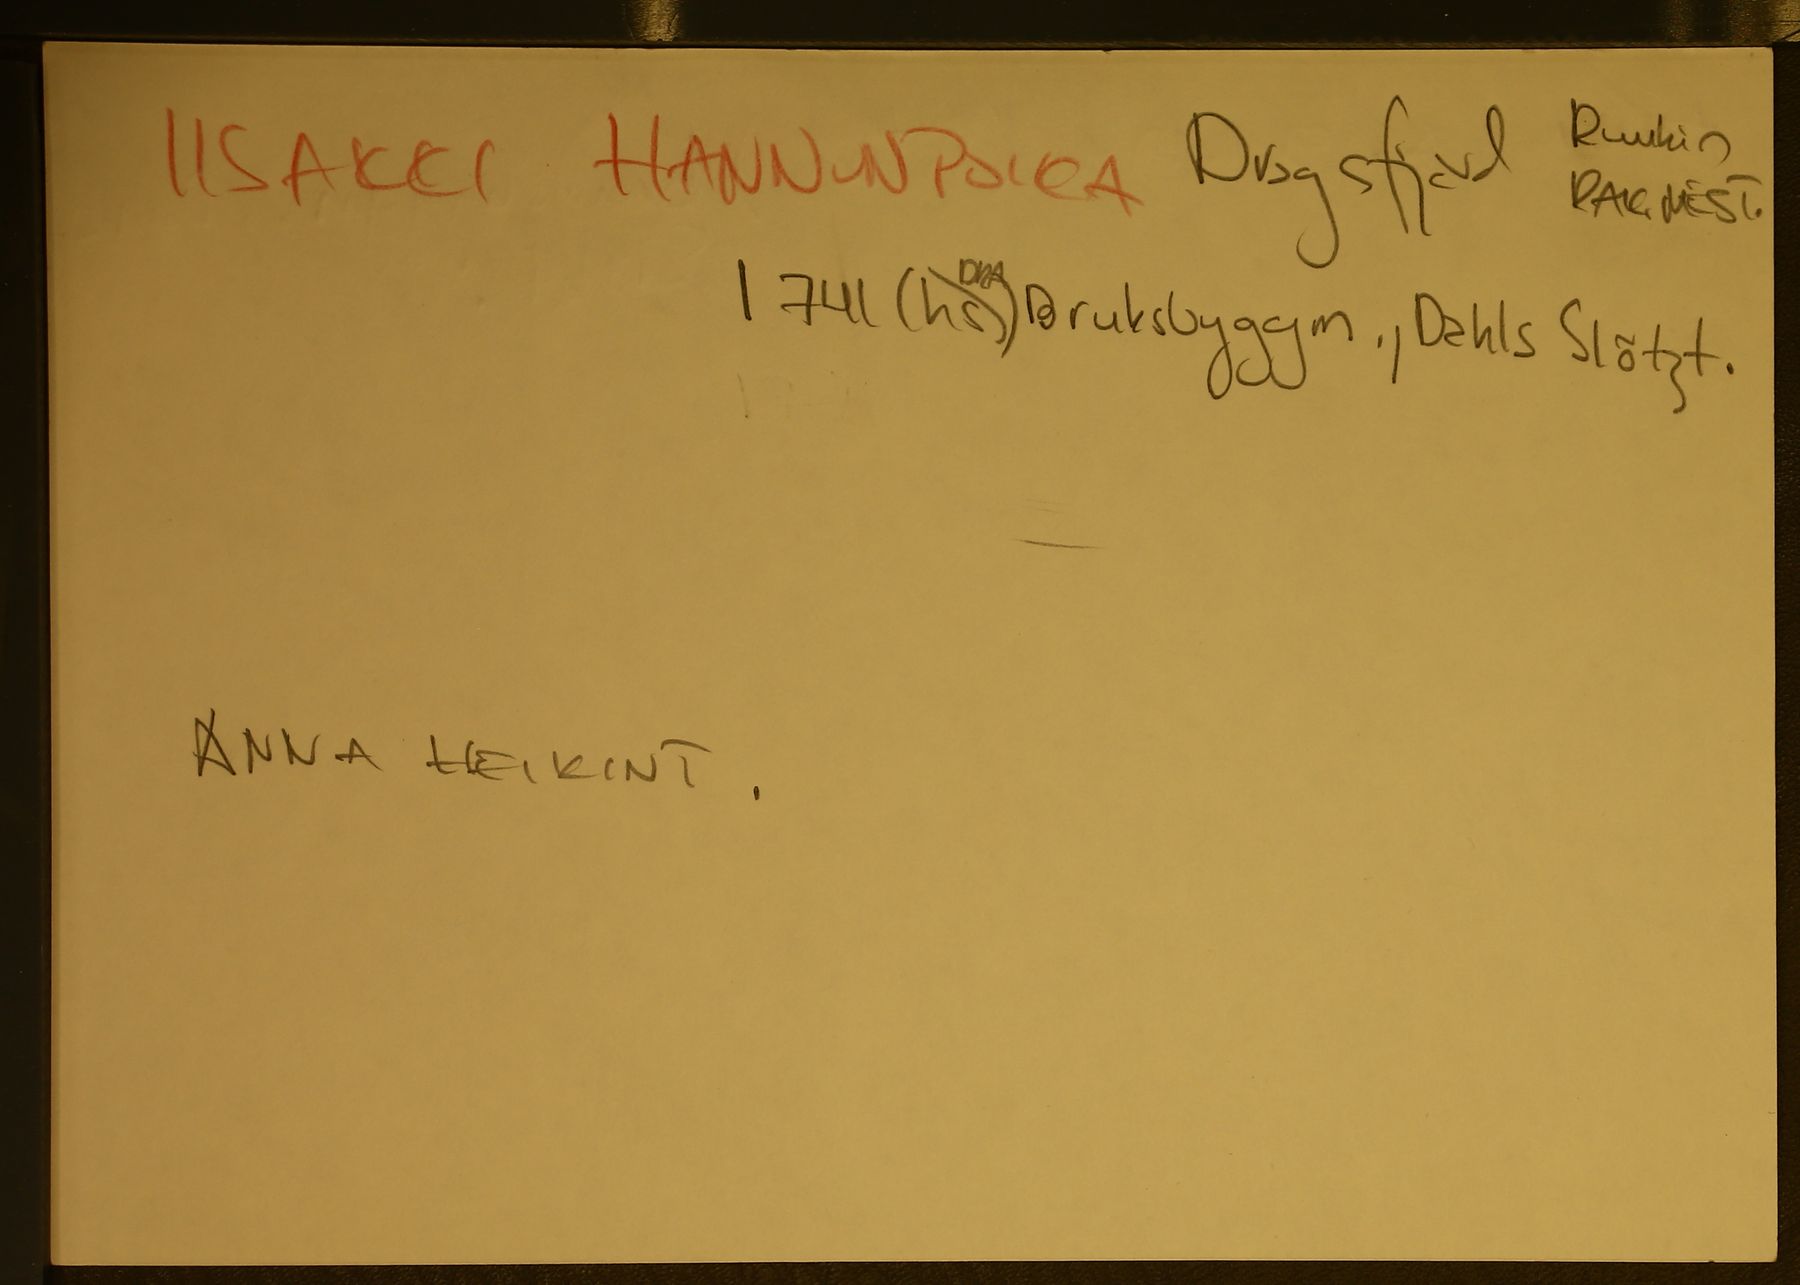 IISAKKI HANNUNPOIKA Dragsfjärd Ruukin
RAK.MEST.
1741 (hs) DKA Bruksbyggm., Dahls Slötzt.
ANNA HEIKINT.